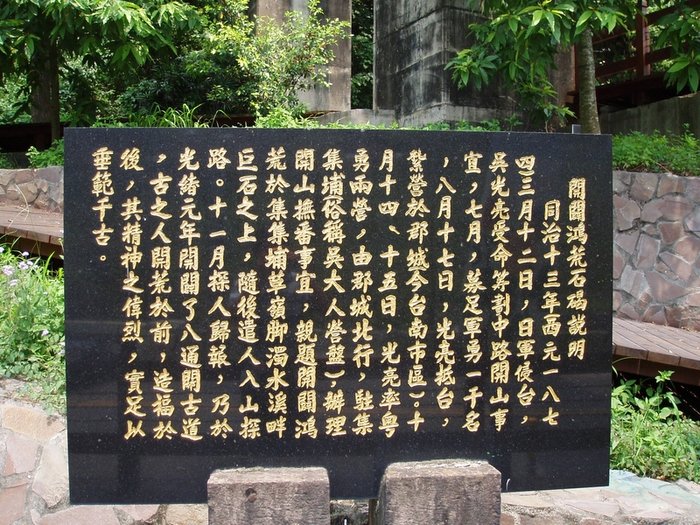 開闢鴻荒石碣說明
同治十三年(西元一八七
四)三月十二日,日軍侵台,
吳光亮奉命籌劃中路開山事
宜,七月,募足軍勇一千名
,八月十七日,光亮抵台,
紮營於郡城(今台南市區);十
月十四、十五日,光亮率粵
勇兩營,由郡城北行,駐集
集埔(俗稱吳大人營盤),辦理
開山撫番事宜,親題開闢鴻
荒於集集埔草嶺腳濁水溪畔
巨石之上,隨後遣人入山探
路。十一月探人歸報,乃於
光緒元年開闢了八通關古道
,古之人開荒於前,造福於
後,其精神之偉烈,實足以
垂範千古。